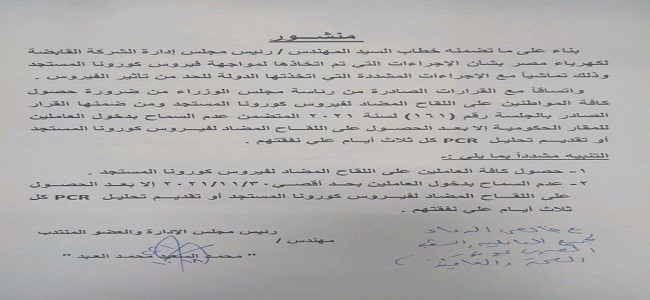 منشـــور
بناء على ما تضمنه خطاب السيد المهندس / رئيس مجلس إدارة الشركة القابضة
لكهرباء مصر بشان الاجراءات التي تم اتخاذها لمواجهة فيروس كورونا المستجد
وذلك تماشياً مع الاجراءات المشددة التي اتخذتها الدولة للحد من تاثير الفيروس .
واتساقاً مع القرارات الصادرة من رئاسة مجلس الوزراء من ضرورة حصول
كافة المواطنين على اللقاح المضاد لفيروس كورونا المستجد ومن ضمنها القرار
الصادر بالجلسة رقم (١٦١) لسنة ٢٠٢١ المتضمن عدم السماح بدخول العاملين
للمقار الحكومية إلا بعد الحصول على اللقاح المضاد لفيروس كورونا المستجد
أو تقديم تحليل PCR كل ثلاث أيام على نفقتهم .
التنبيه مشدداً بما يلى :-
١- حصول كافة العاملين على اللقاح المضاد لفيروس كورونا المستجد .
٢- عدم السماح بدخول العاملين بحد أقصي ٢٠٢١/١١/٣٠ إلا بعد الحصول
على اللقاح المضاد لفيروس كورونا المستجد أو تقديم تحليل PCR كل
ثلاث أيام على نفقتهم .
رئيس مجلس الإدارة والعضو المنتدب
مهندس /
" محمد السعيد محمد العبد "